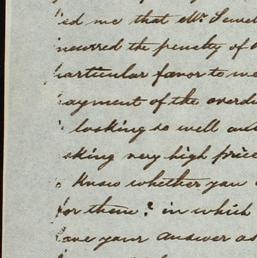 ed me that Mr. Sewel
ncurred the penalty of a
particular favor to me
ayment of the overdu
looking so well and
sking very high price
know whether you
for them? in which
ave your answer as